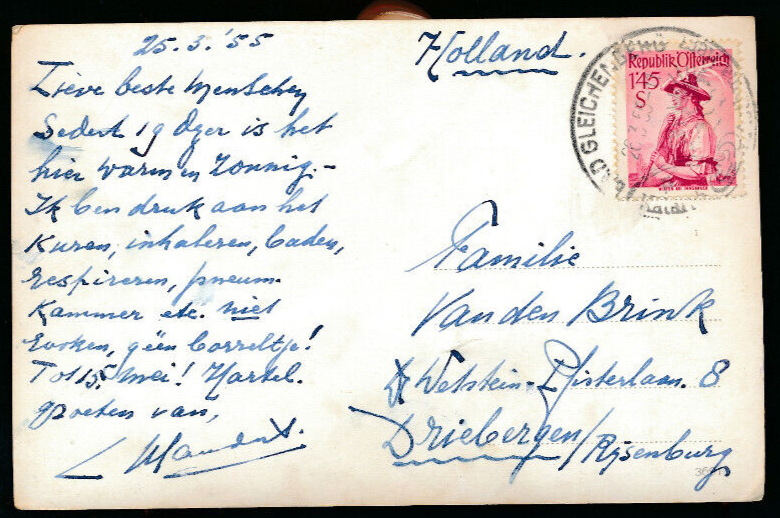 25.3.'55
Lieve beste Menschen
Sedert 19 is het
hier warm en zonnig.-
Ik ben druk aan het
Kuren, inhaleren, baden,
respireren, pneum.
Kammer etc. niet
roken, géén borreltje!
Tot 15. mei! Hartel.
groeten van,
Holland.
BAD GLEICHENBERG
Republik Österreich
1'45
S
Familie
Van den Brink
Wetstein-Pfisterlaan. 8
Driebergen/Rijsenburg